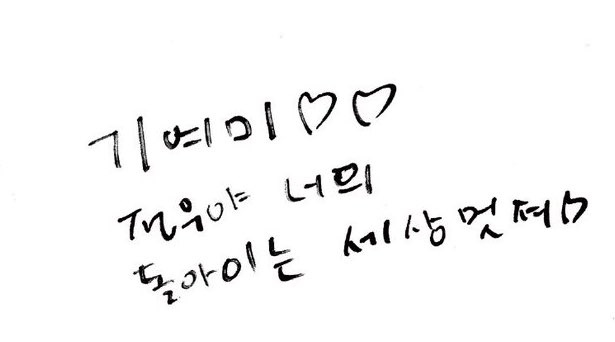 기여미♡♡
전우야 너의
돌아이는 세상멋져♡